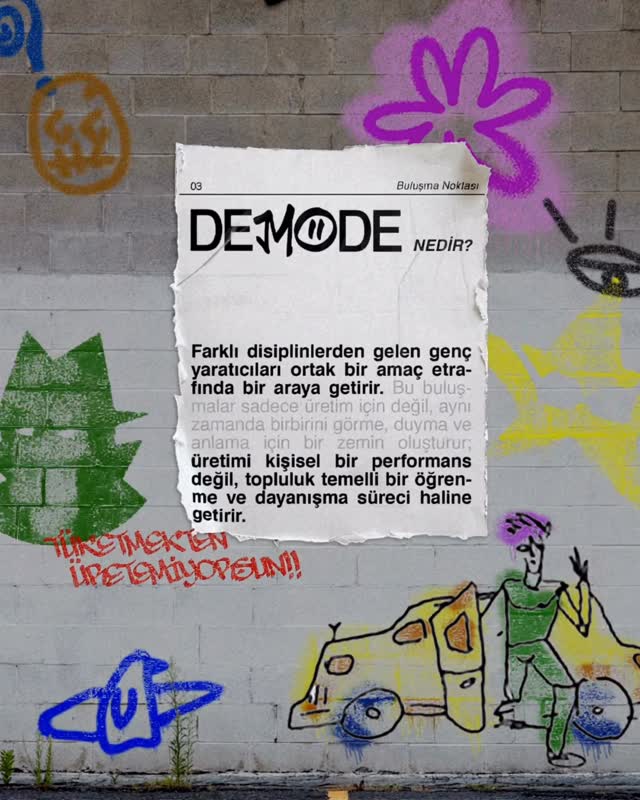 03
Buluşma Noktası
DEMODE NEDİR?
Farklı disiplinlerden gelen genç
yaratıcıları ortak bir amaç etra-
fında bir araya getirir. Bu buluş-
malar sadece üretim için değil, aynı
zamanda birbirini görme, duyma ve
anlama için bir zemin oluşturur;
üretimi kişisel bir performans
değil, topluluk temelli bir öğren-
me ve dayanışma süreci haline
getirir.
TÜKETMEKTEN
ÜRETEMİYORSUN!!